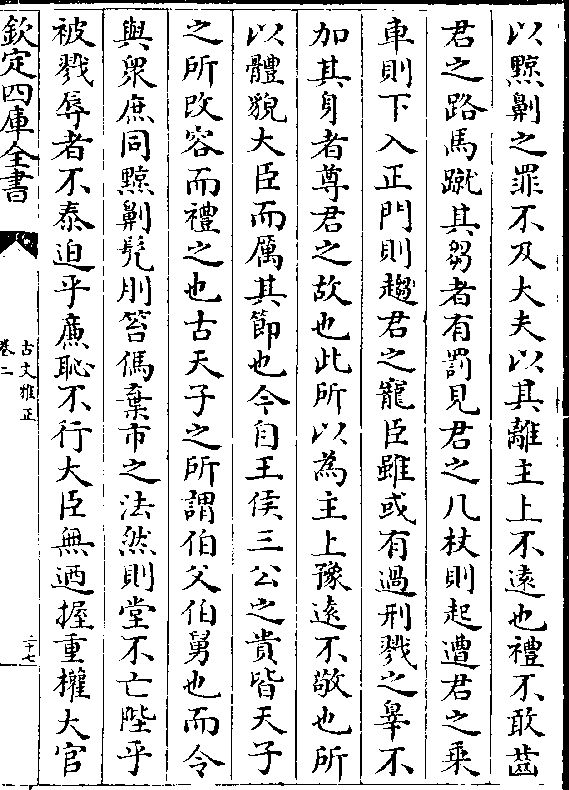 以黥劓之罪不及大夫以其離主上不遠也禮不敢齒
君之路馬蹴其芻者有罰見君之几杖則起遭君之乗
車則下入正門則趨君之寵臣雖或有過刑戮之辠不
加其身者尊君之故也此所以為主上豫遠不敬也所
以體貌大臣而厲其節也今自王侯三公之貴皆天子
之所改容而禮之也古天子之所謂伯父伯舅也而令
與衆庶同黥劓髠刖笞傌棄市之法然則堂不亡陛乎
被戮辱者不泰迫乎廉恥不行大臣無迺握重權大官
欽定四庫全書
古文雅正
卷二
三十七